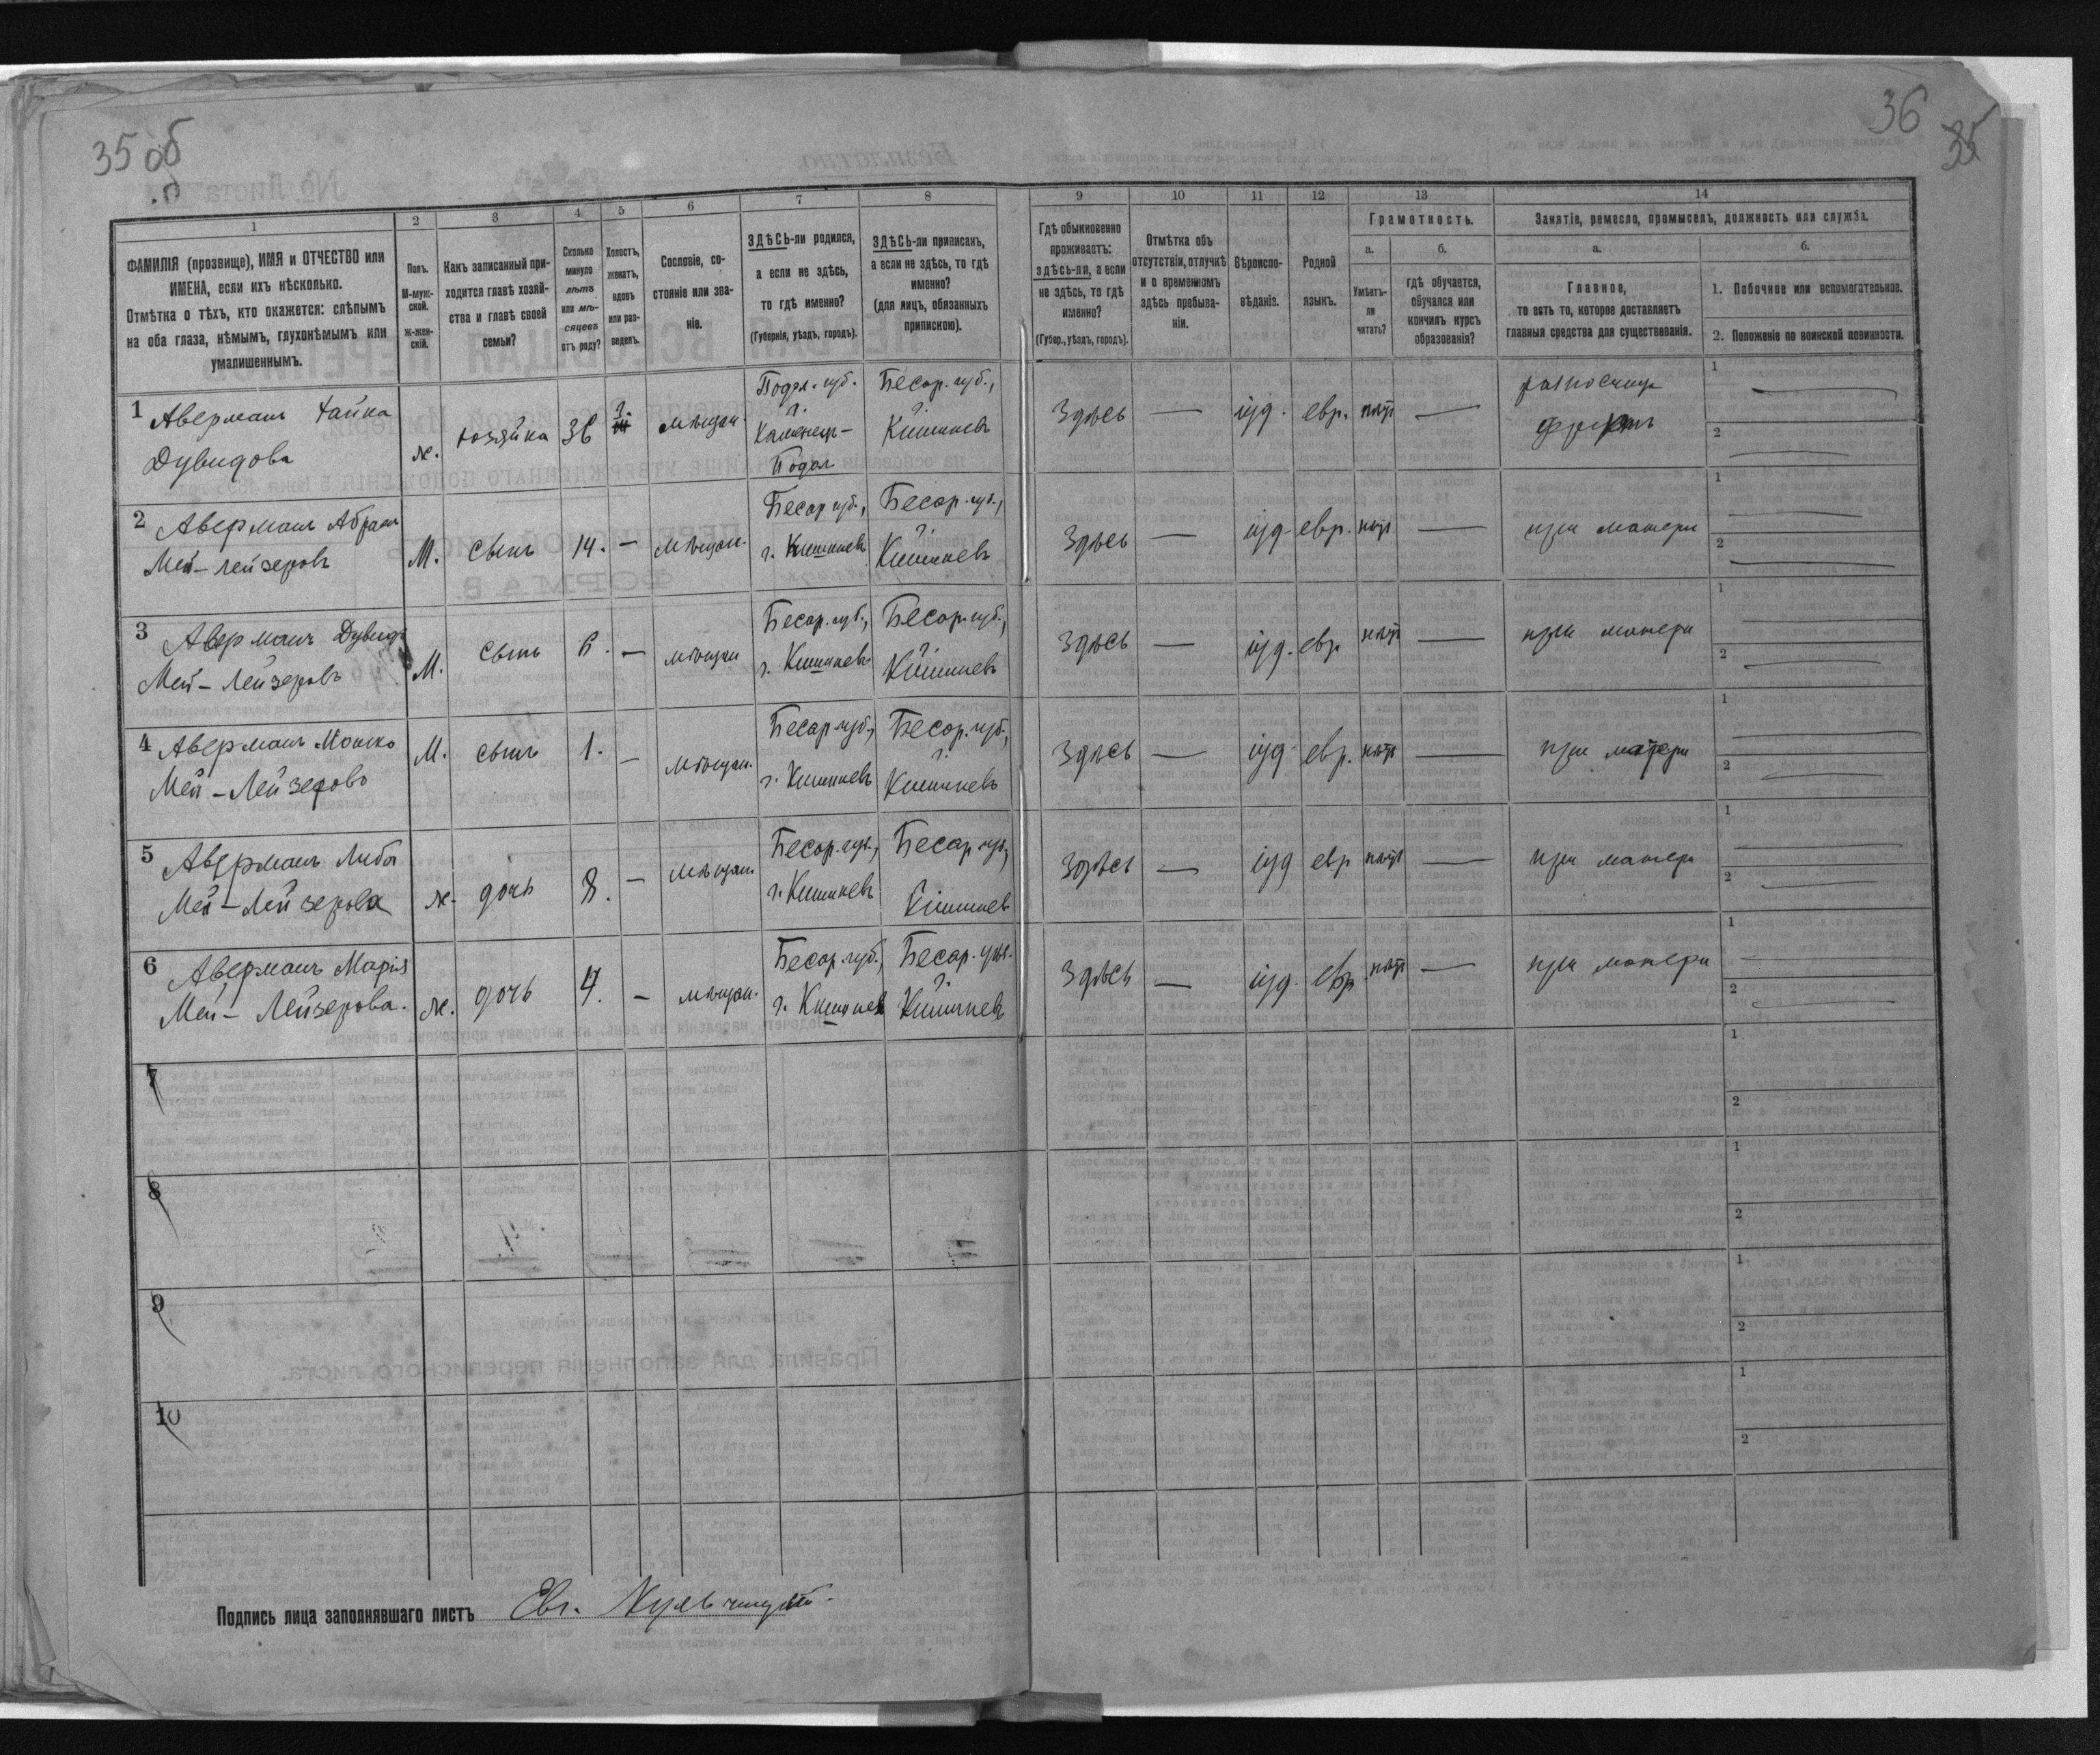 35 об
36
35
1
2
3
4
5
6
7
8
9
10
11
12
13
14
ФАМИЛІЯ (прозвище), ИМЯ и ОТЧЕСТВО или
ИМЕНА, если ихъ нѣсколько.
Отмѣтка о тѣхъ, кто окажется: слѣпымъ
на оба глаза, нѣмымъ, глухонѣмымъ или
умалишеннымъ.
Полъ.
М-муж-
ской.
Ж-жен-
скій.
Какъ записанный при-
ходится главѣ хозяй-
ства и главѣ своей
семьи?
Сколько
минуло
лѣтъ
или мѣ-
сяцевъ
отъ роду?
Холостъ,
женатъ,
вдовъ
или раз-
веденъ.
Сословіе, со-
стояніе или зва-
ніе.
ЗДѢСЬ-ли родился,
а если не здѣсь,
то гдѣ именно?
(Губернія, уѣздъ, городъ).
ЗДѢСЬ-ли приписанъ,
а если не здѣсь, то гдѣ
именно?
(для лицъ, обязанныхъ
припискою).
Гдѣ обыкновенно
проживаетъ:
здѣсь-ли, а если
не здѣсь, то гдѣ
именно?
(Губер., уѣздъ, городъ).
Отмѣтка объ
отсутствіи, отлучкѣ
и о временномъ
здѣсь пребыва-
ніи.
Вѣроиспо-
вѣданіе.
Родной
языкъ.
Грамотность.
а.
Умѣетъ-
ли
читать?
б.
гдѣ обучается,
обучался или
кончилъ курсъ
образованія?
Занятіе, ремесло, промыселъ, должность или служба.
а.
Главное,
то есть то, которое доставляетъ
главныя средства для существованія.
б.
1. Побочное или вспомогательное.
2. Положеніе по воинской повинности.
1 Аверманъ Хайка
Дувидова
ж. хозяйка 36 мѣщан.
Подол. губ.
г.
Каменец-
Подол
Бесар. губ.,
г.
Кишиневъ
Здѣсь — іуд. евр. нѣт —
разносчица
1
2
2 Аверманъ Абрам
Мей-Лейзеровъ
М. сынъ 14. — мѣщан.
Бесар губ.,
г. Кишиневъ
Бесар. губ.,
г.
Кишиневъ
Здѣсь — іуд. евр. нѣт — при матери
1
2
3 Аверманъ Дувидъ
Мей-Лейзеровъ
М. сынъ 6. — мѣщан
Бесар. губ.,
г. Кишиневъ
Бесар. губ.,
г.
Кишиневъ
Здѣсь — іуд. евр нѣт — при матери
1
2
4 Аверманъ Мошко
Мей-Лейзеровъ
М. сынъ 1. — мѣщан.
Бесар губ.,
г. Кишиневъ
Бесар. губ.,
г.
Кишиневъ
Здѣсь — іуд. евр. нѣт — при матери
1
2
5 Аверманъ Либа
Мей-Лейзерова
ж. дочь 8. — мѣщан.
Бесар. губ.,
г. Кишиневъ
Бесар губ.,
Кишинев
Здѣсь — іуд евр нѣт — при матери
1
2
6 Аверманъ Марія
Мей-Лейзерова.
ж. дочь 4. — мѣщан.
Бесар. губ.,
г. Кишинев
Бесар. губ.
г.
Кишиневъ
Здѣсь — іуд. евр нѣт — при матери
1
2
7
1
2
8
1
2
9
1
2
10
1
2
Подпись лица заполнявшаго листъ Евг.